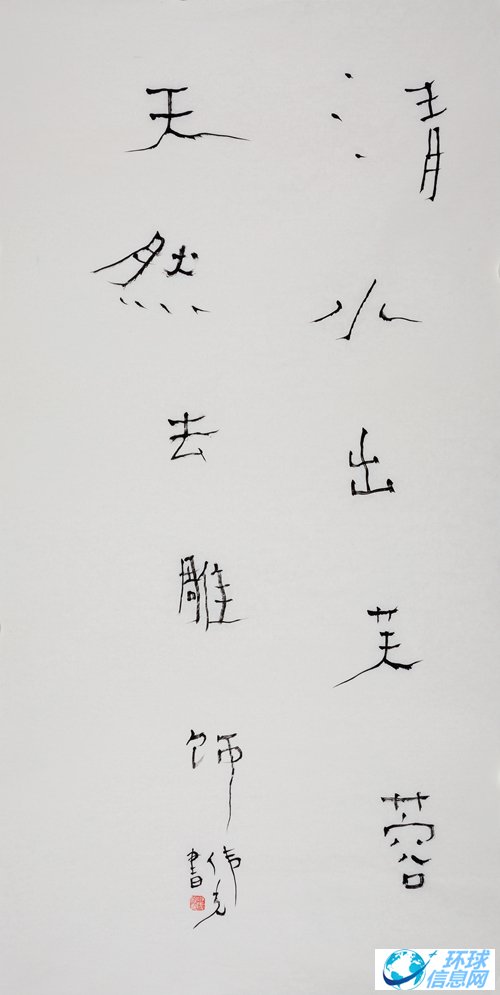 清水出芙蓉
天然去雕饰
伟克
書
环球
信息网